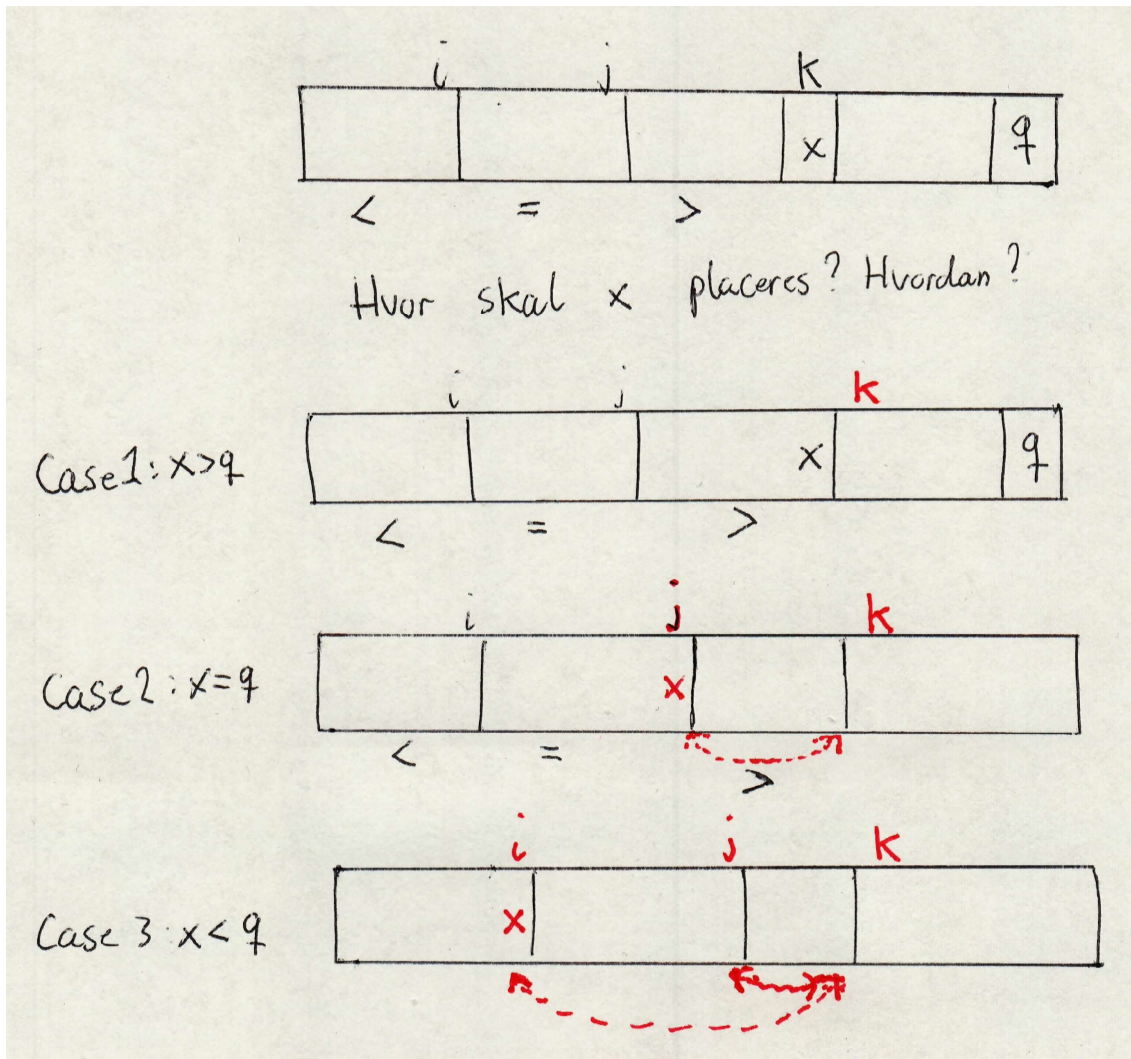 i j k
x q
< = >
Hvor skal x placeres? Hvordan?
i j k
Case 1: x>q x q
< = >
i j k
Case 2: x=q x
< = >
i j k
Case 3: x<q x